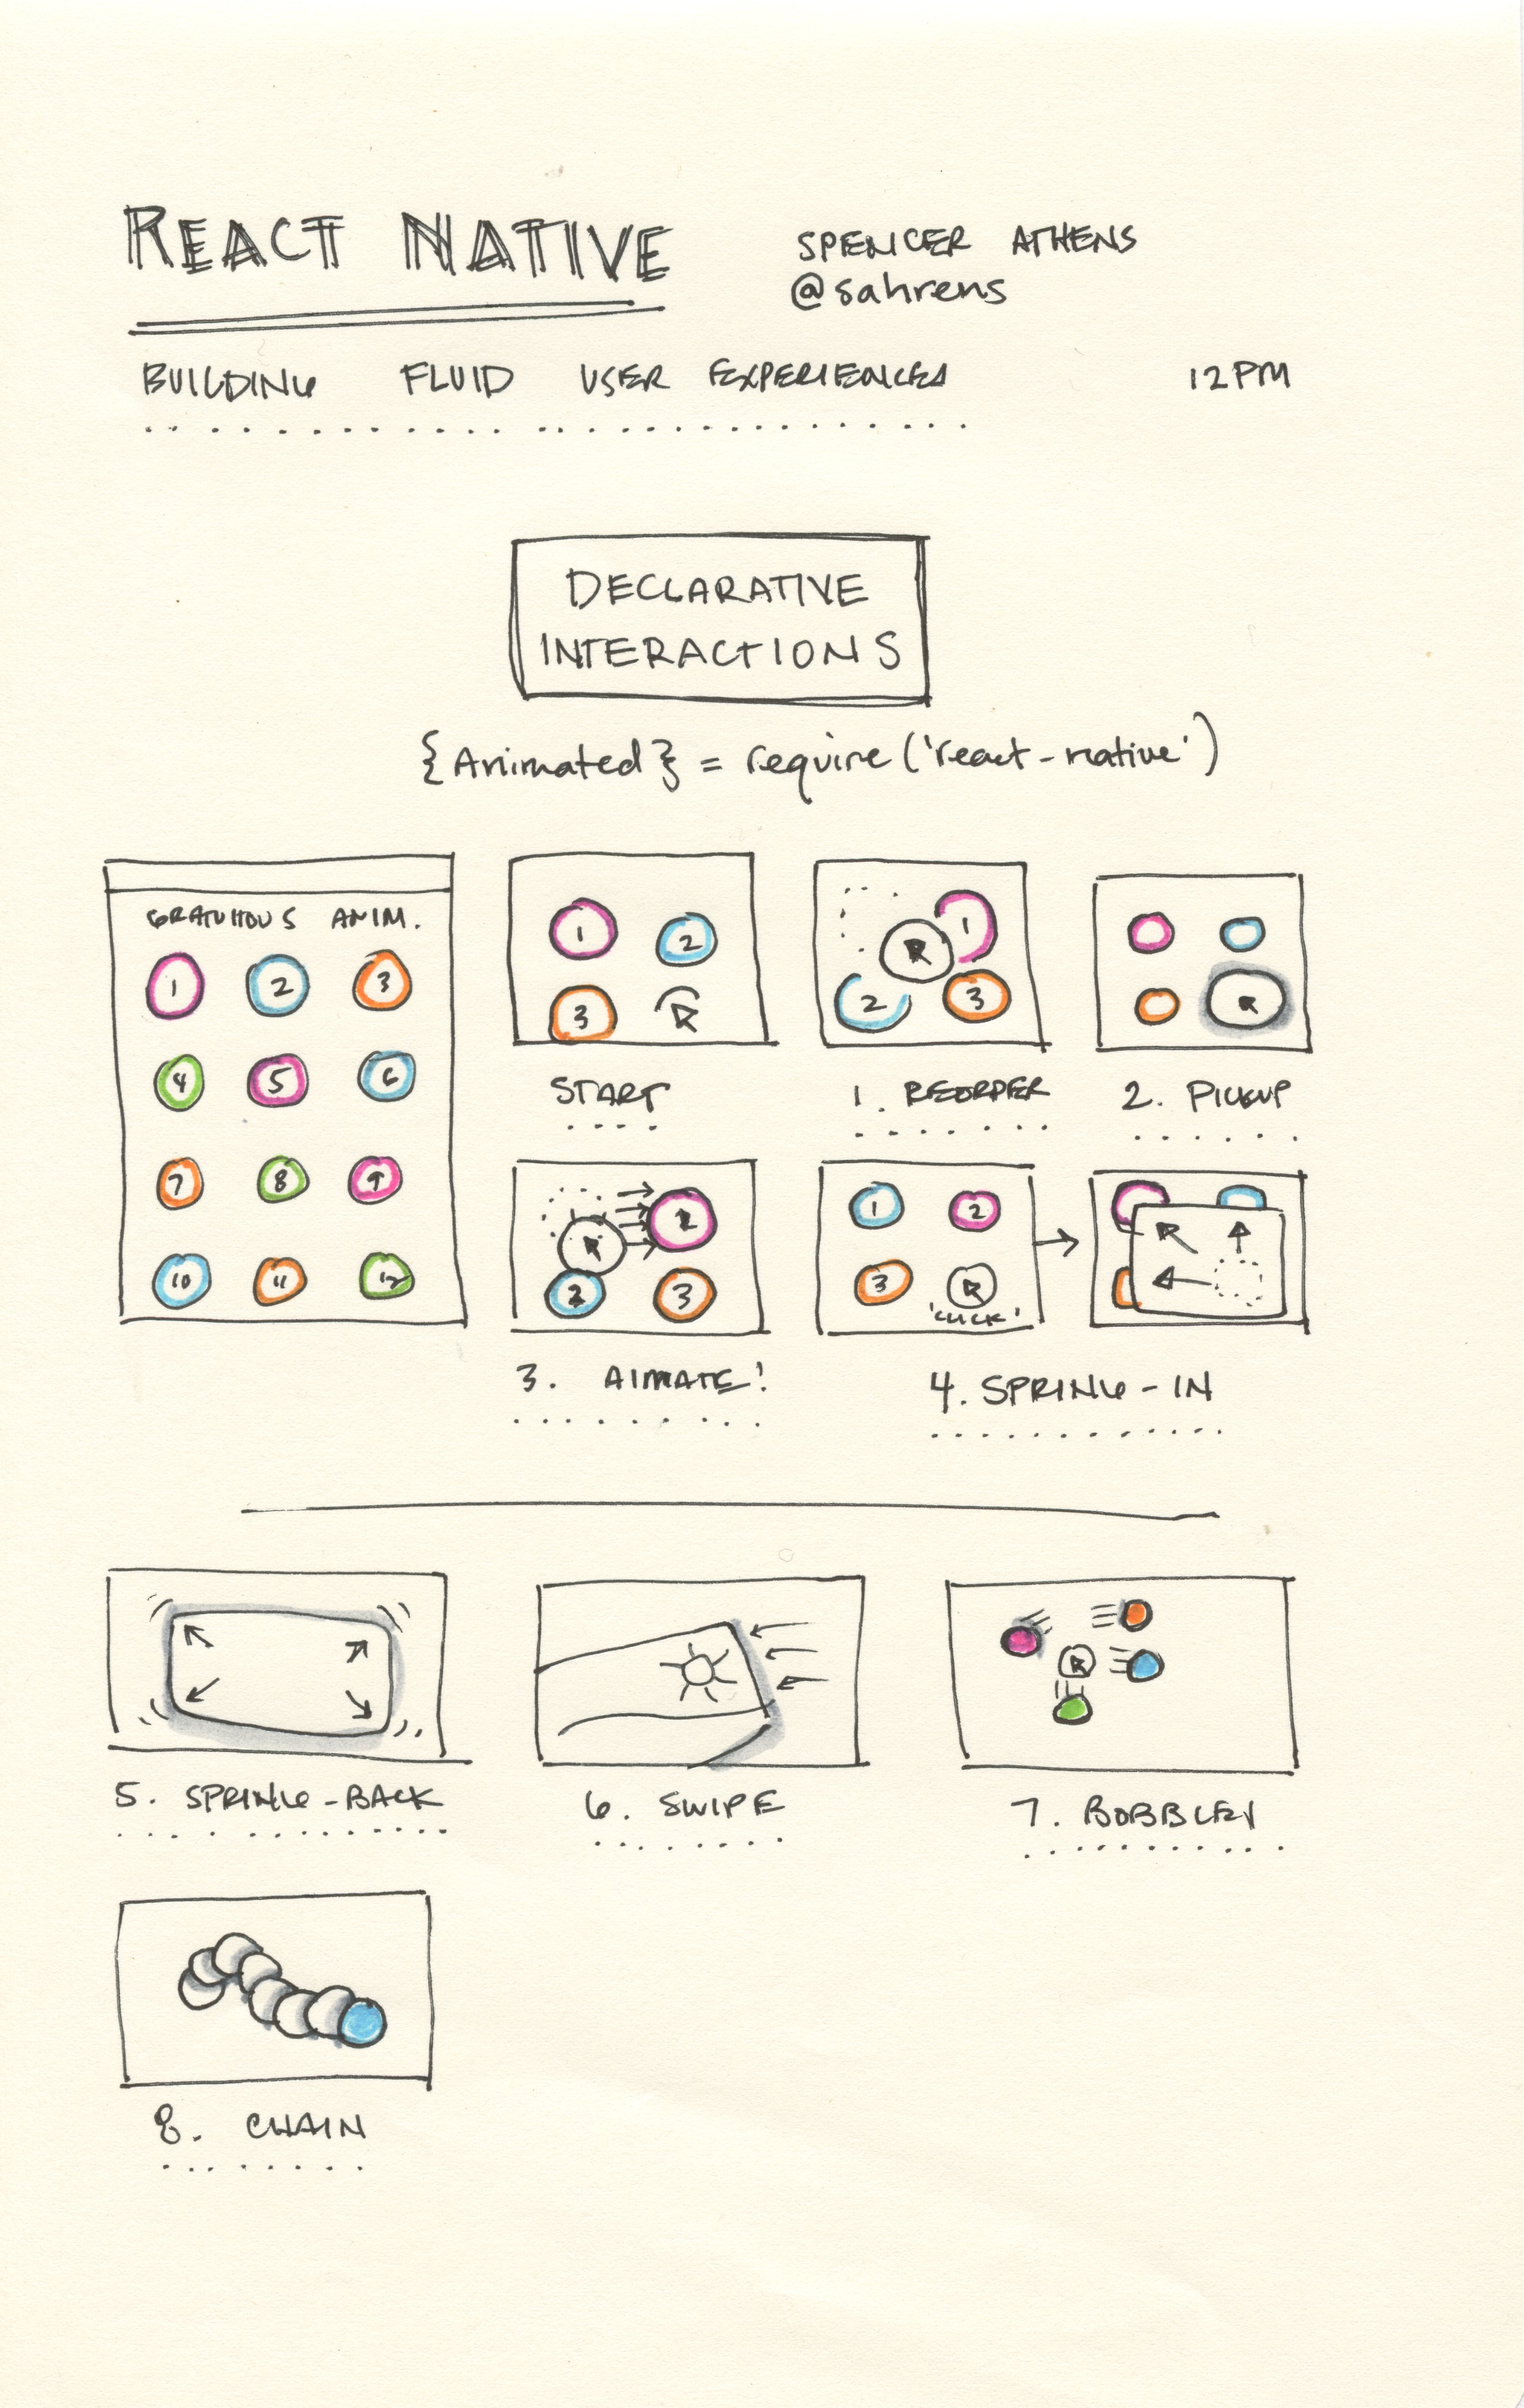 REACT NATIVE
SPENCER ATHENS
@sahrens
BUILDING FLUID USER EXPERIENCES
12PM
DECLARATIVE
INTERACTIONS
{Animated} = require('react-native')
GRATUITOUS ANIM.
1 2 3
4 5 6
7 8 9
10 11 12
1 2
3
START
1
2 3
1. REORDER
2. PICKUP
1
2 3
3. AIMATE!
1 2
3
'CLICK'
4. SPRING-IN
5. SPRING-BACK
6. SWIPE
7. BOBBLES
8. CHAIN